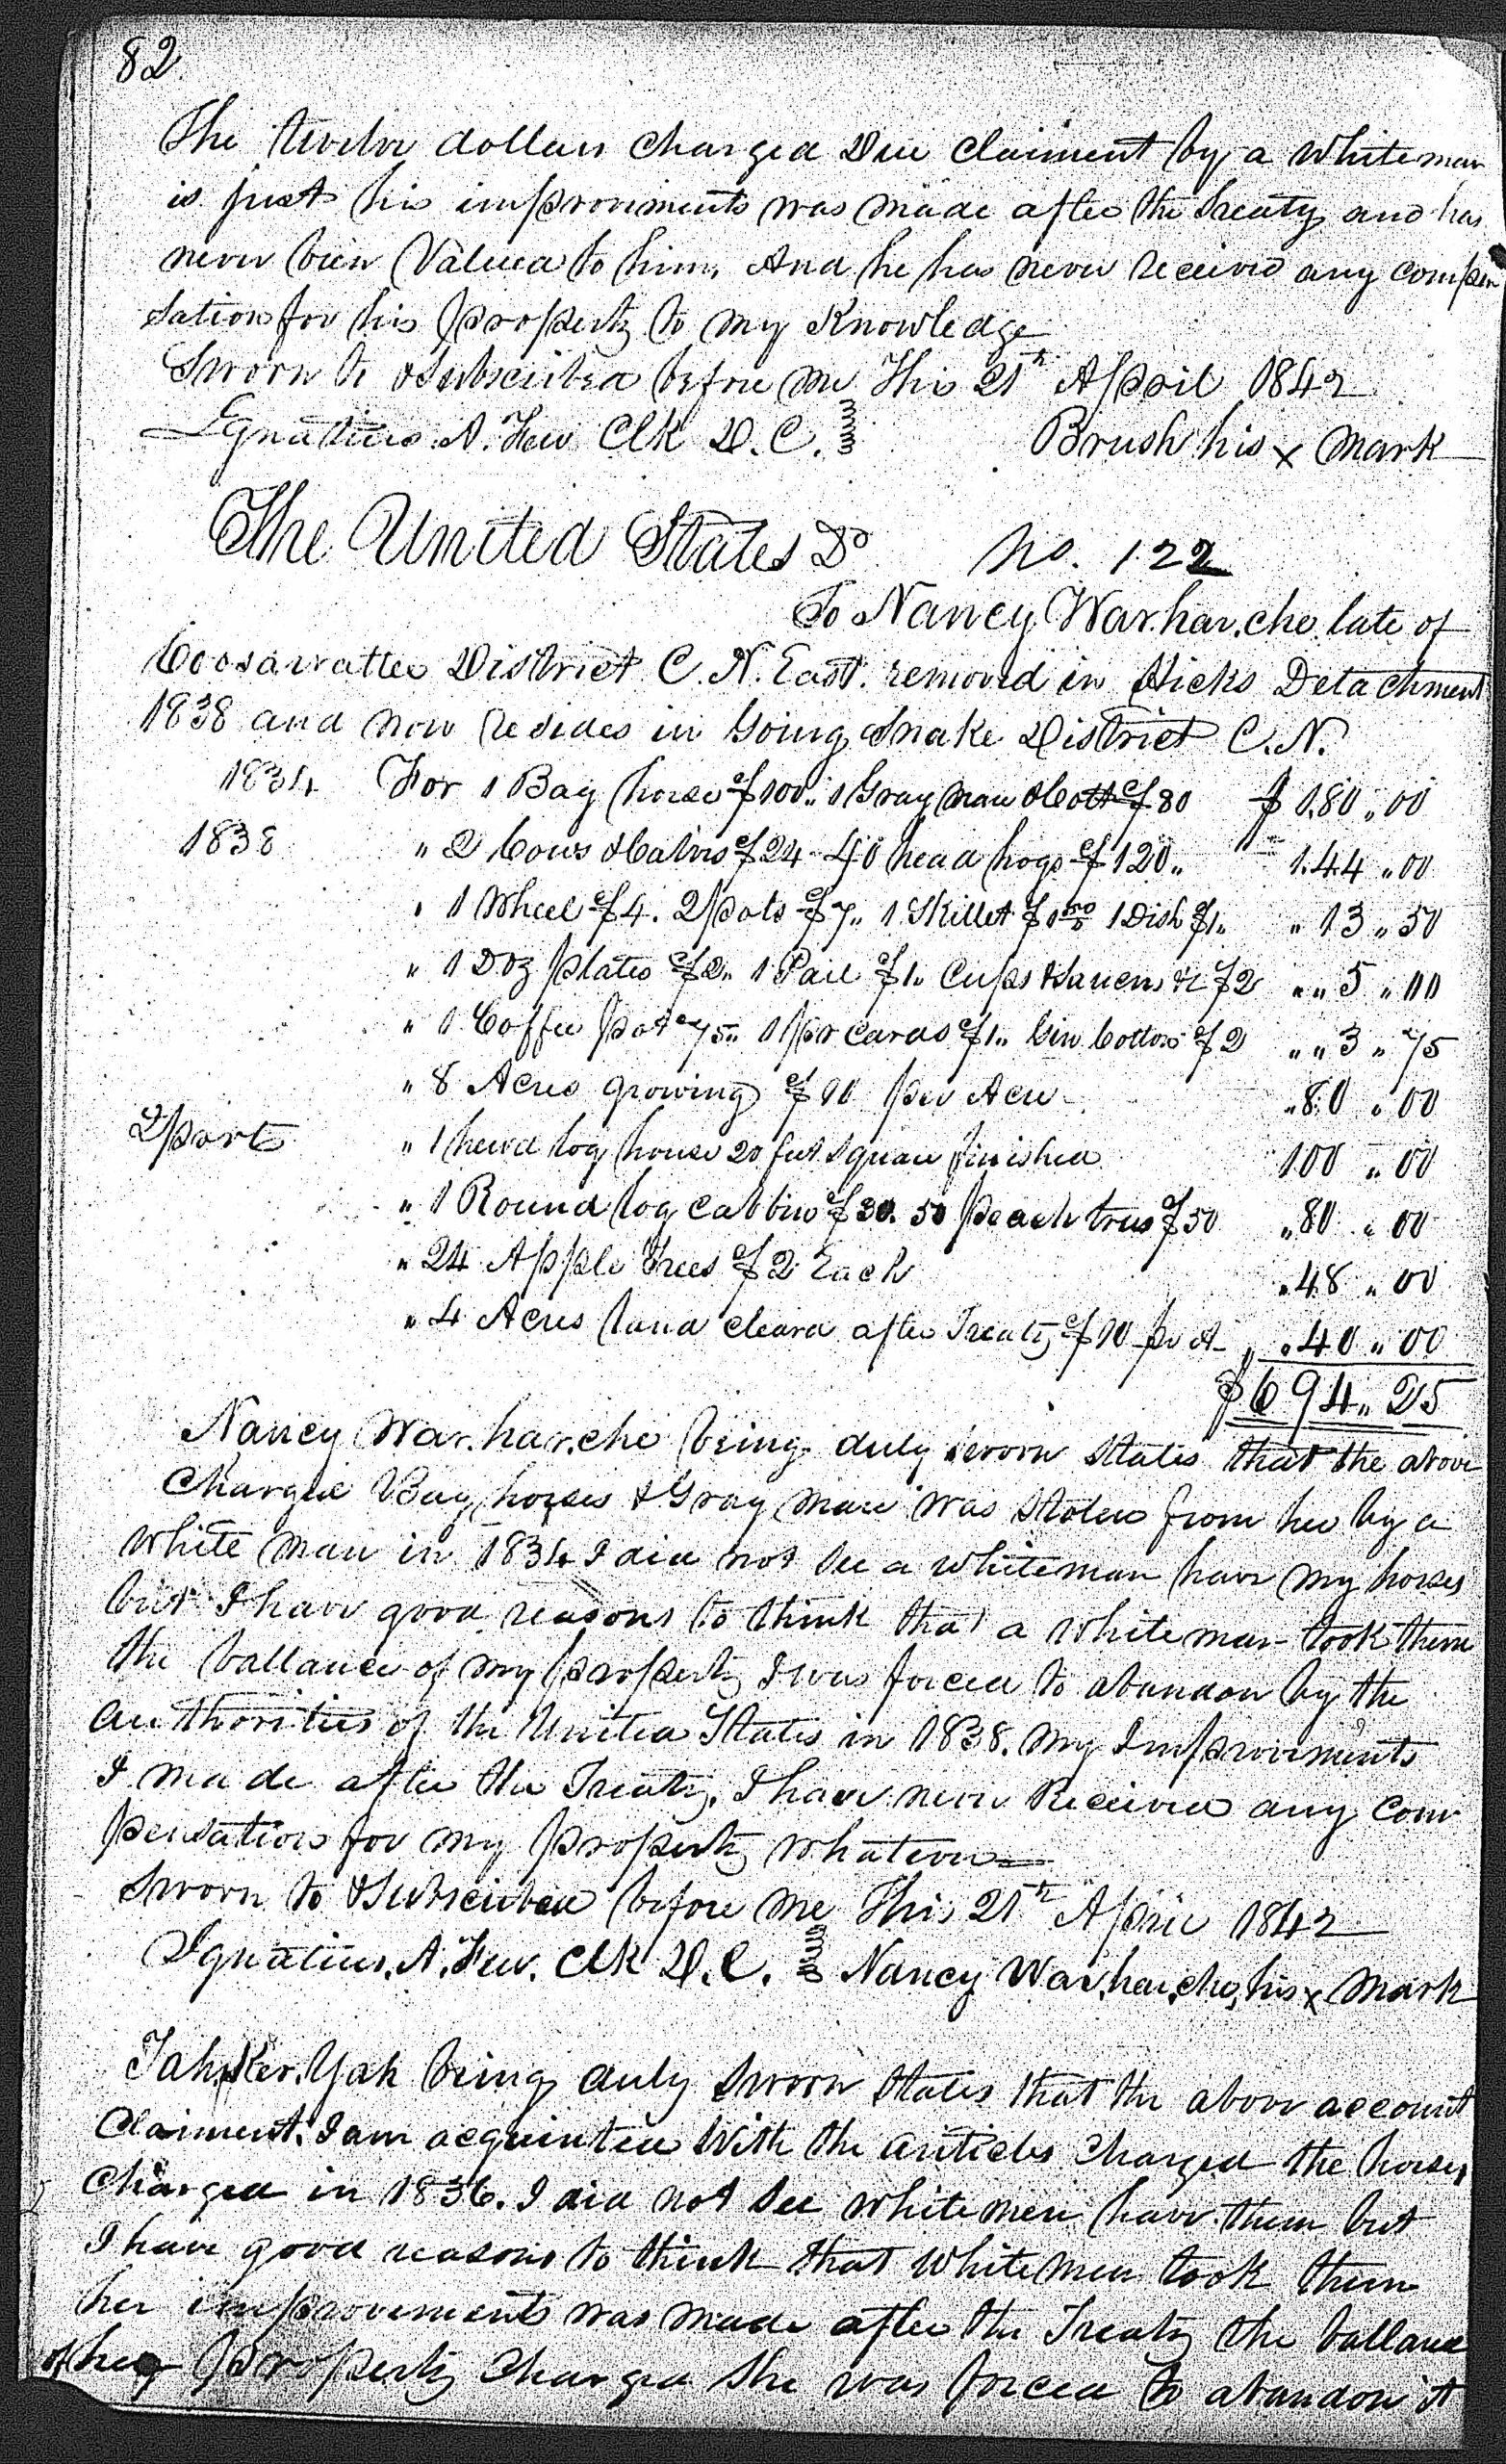 82
The twelve dollars charged Due Claiment by a whiteman
is just his improvements was made after the treaty and has
never bien Valued to him, And he has never received any compen
sation for his property to my Knowledge
Sworn to & Subscribed before me This 21st April 1842
Ignatius A. Few Clk D. C. Brush his x mark
The United States Do No. 122
To Nancy War.har.che late of
Coosawattee District C. N. East. removed in Hicks Detachment
1838 and now resides in Going Snake District C. N.
1834 For 1 Bay horse $100.. 1 Gray mare & Colt $80 $ 180 .. 00
1838 " 2 Cows & Calvs $24 - 40 head hogs $120 .. " 144 .. 00
" 1 Wheel $4. 2 pots $7.. 1 Skillet $1.50 1 Dish $1.. " 13 .. 50
" 1 Doz plates $2.. 1 Pail $1.. Cups & Saucers &c $2 " " 5 .. 00
" 1 Coffee pot 75.. 1 pr Cards $1.. Gin Cotton $2 " " 3 .. 75
" 8 Acres growing $10 per Acre " 80 .. 00
2 part " 1 hewd log house 20 feet square finished 100 .. 00
" 1 Round log Cabbin $30. 50 peach trees $50 " 80 .. 00
" 24 Apple Trees $2 Each " 48 .. 00
" 4 Acres land cleard after Treaty $10 pr A " 40 .. 00
$ 694 .. 25
Nancy War.har.che being duly sworn states that the above
Charged Bay horses & Gray mare was stolen from her by a
white man in 1834 I did not see a whiteman have my horses
but I have good reasons to think that a whiteman took them
the ballance of my property I was forced to abandon by the
authorities of the United States in 1838. my Improvements
I made after the Treaty. I have never Received any com
pensation for my property whatever
Sworn to & Subscribed before me This 21st April 1842
Ignatius. A. Few. Clk D. C. Nancy War.har.che, his x mark
Tah.Ker.Yah being duly sworn states that the above account
Claiment. I am acquinted With the articles Charged the horses
Charged in 1836. I did not see whitemen have them but
I have good reasons to think that whitemen took them
her improvements was made after the Treaty the ballance
of her property Charged she was forced to abandon it